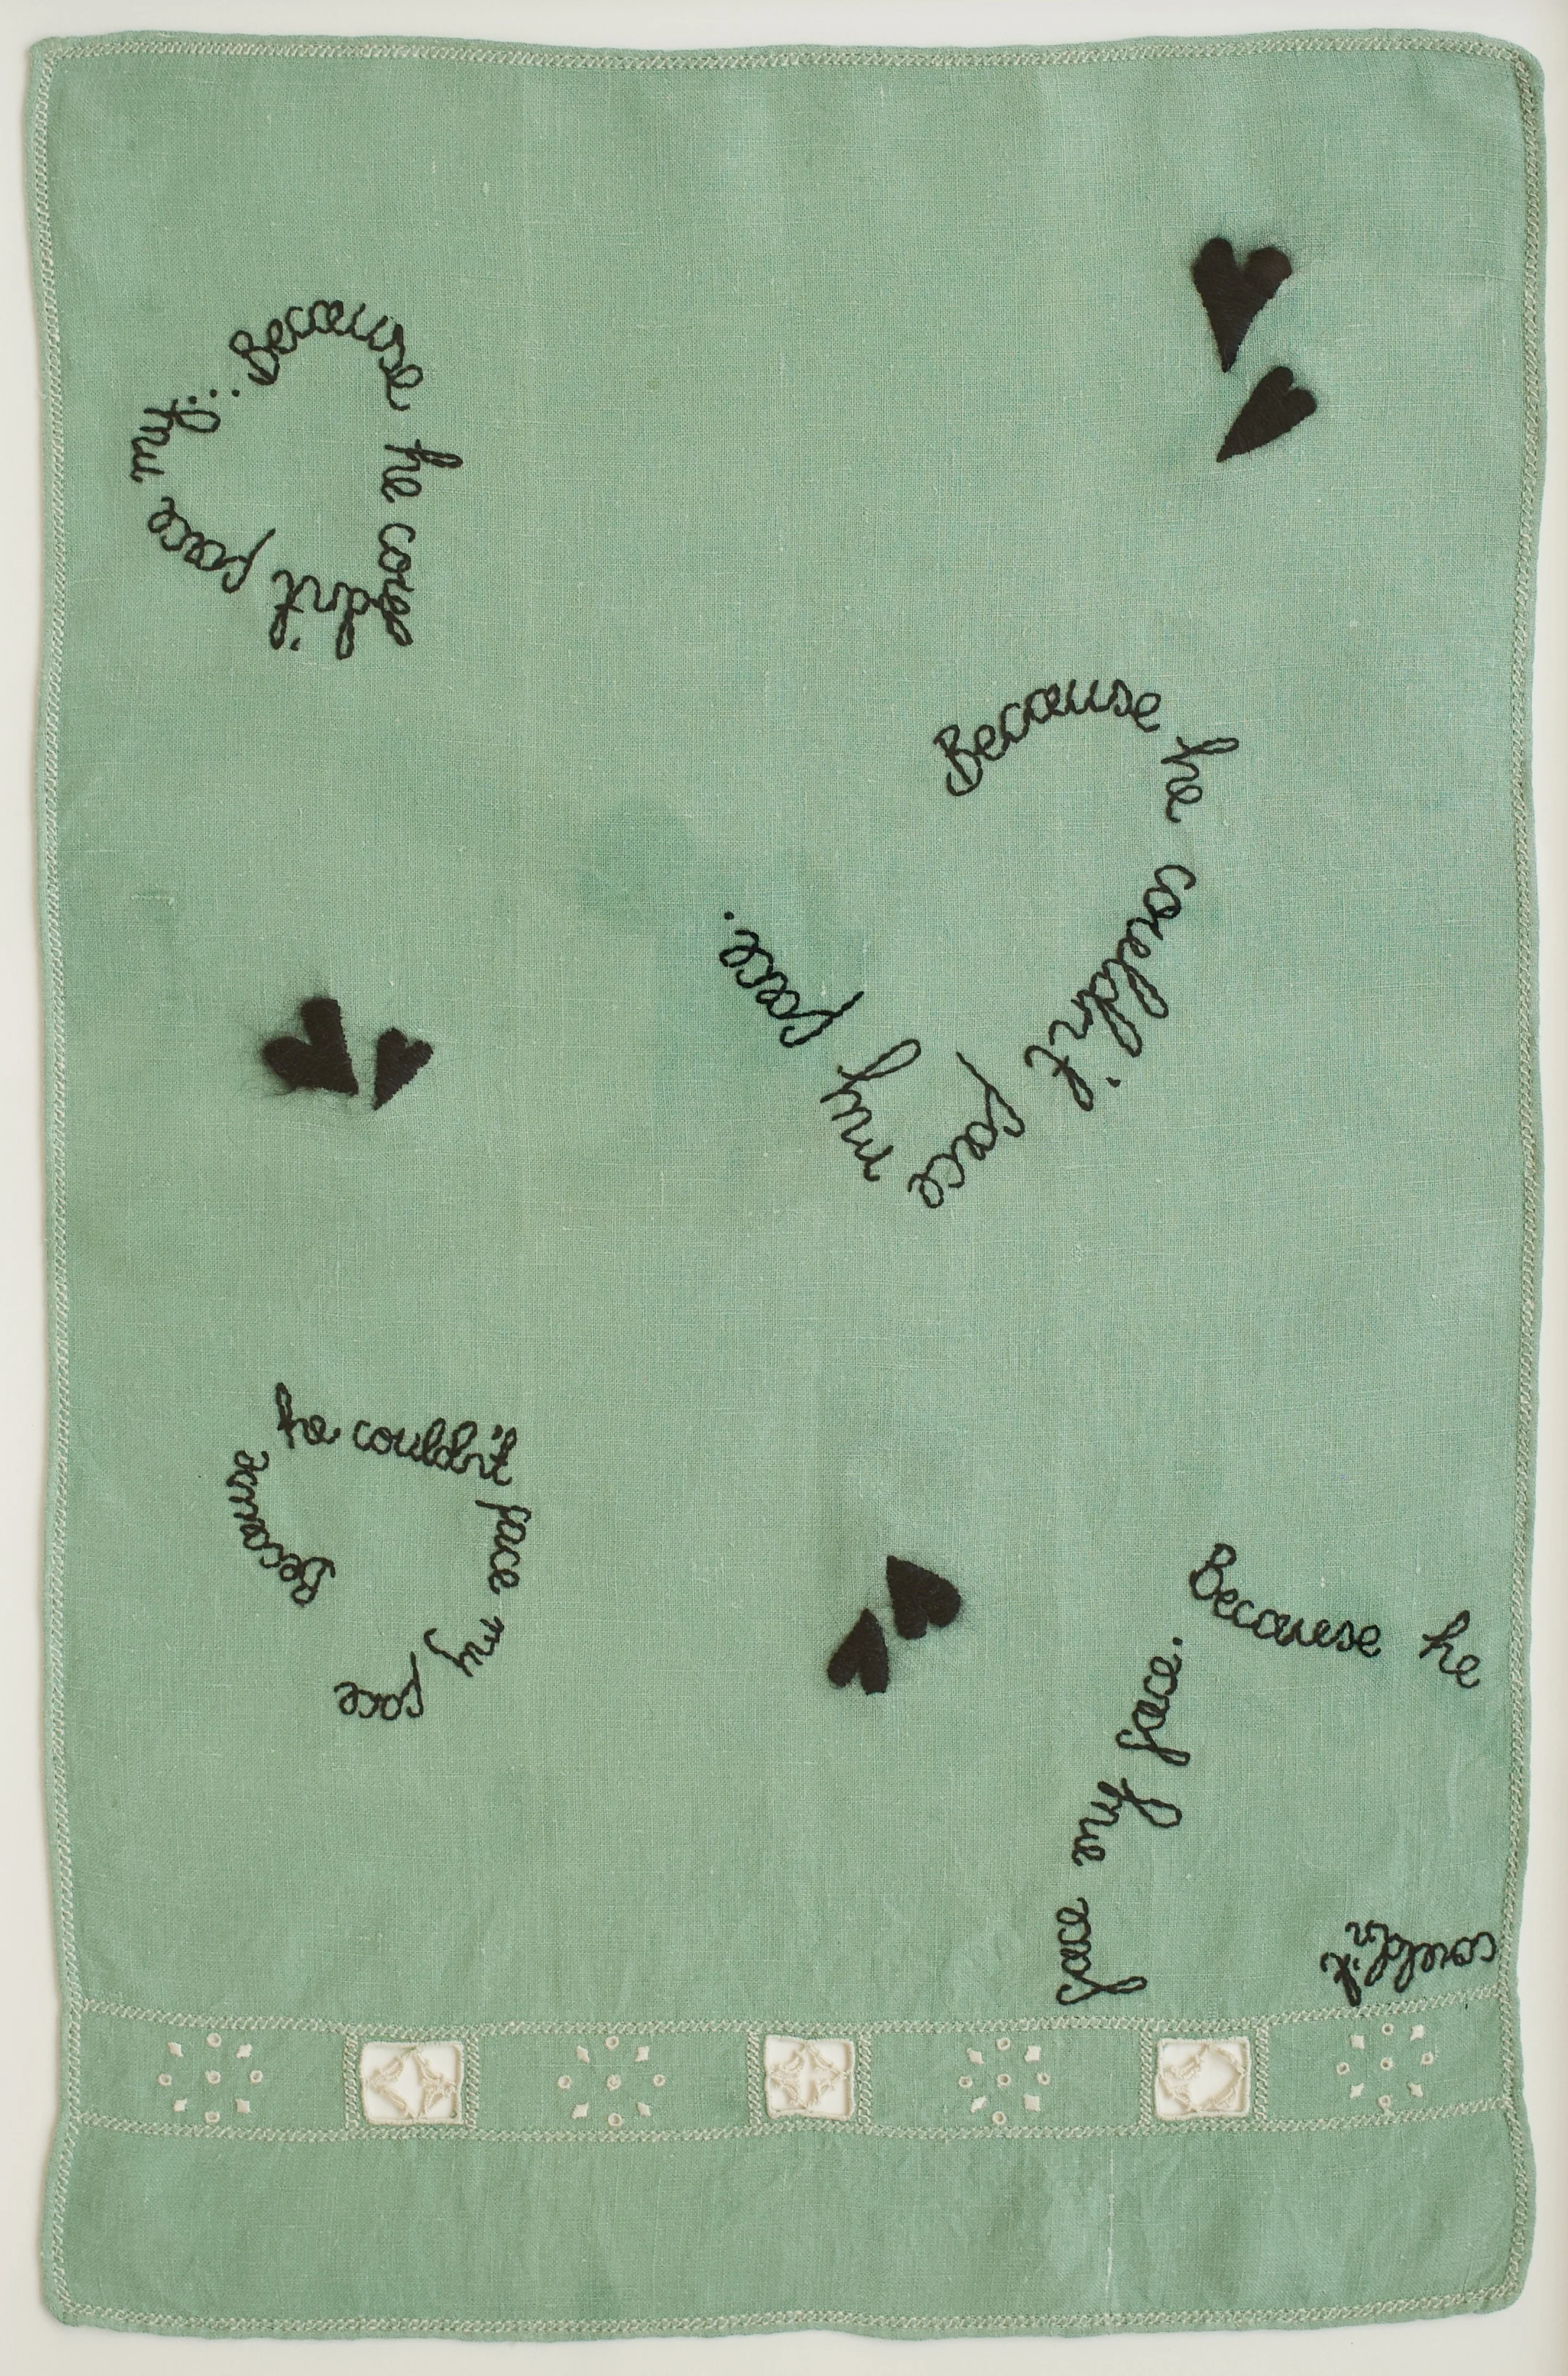 Because he couldn't face my...
Because he couldn't face my face.
Because he couldn't face my face
Because he couldn't face my face.